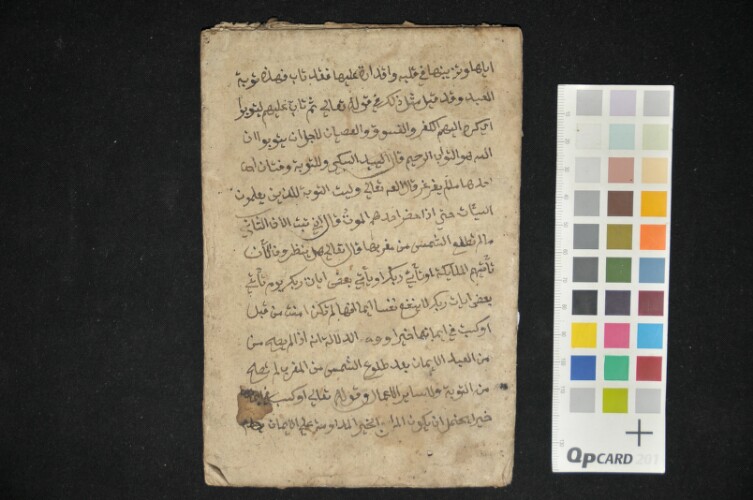 اياها وتزيينها في قلبه واقداره عليها فقد تاب فهذه توبة
العبد وقد قيل مثل ذلك في قوله تعالى ثم تاب عليهم ليتوبوا
اي كره اليهم الكفر والفسوق والعصيان لاجل ان يتوبوا ان
الله هو التواب الرحيم قال السبكي وللتوبة وقتان
احدهما ما لم يغرغر قال الله تعالى وليست التوبة للذين يعملون
السيئات حتى اذا حضر احدهم الموت قال اني تبت الان الثاني
ما لم تطلع الشمس من مغربها قال تعالى هل ينظرون الا ان
تأتيهم الملايكة او يأتي ربك او يأتي بعض ايات ربك يوم تأتي
بعض ايات ربك لا ينفع نفسا ايمانها لم تكن امنت من قبل
او كسبت في ايمانها خيرا ووجه الدلالة انه اذا لم يصح من
من العبد الايمان بعد طلوع الشمس من المغرب لم تصح
من التوبة ولا ساير الاعمال وقوله تعالى او كسبت
خيرا يحتمل ان يكون المراد بالخير المداومة على الايمان